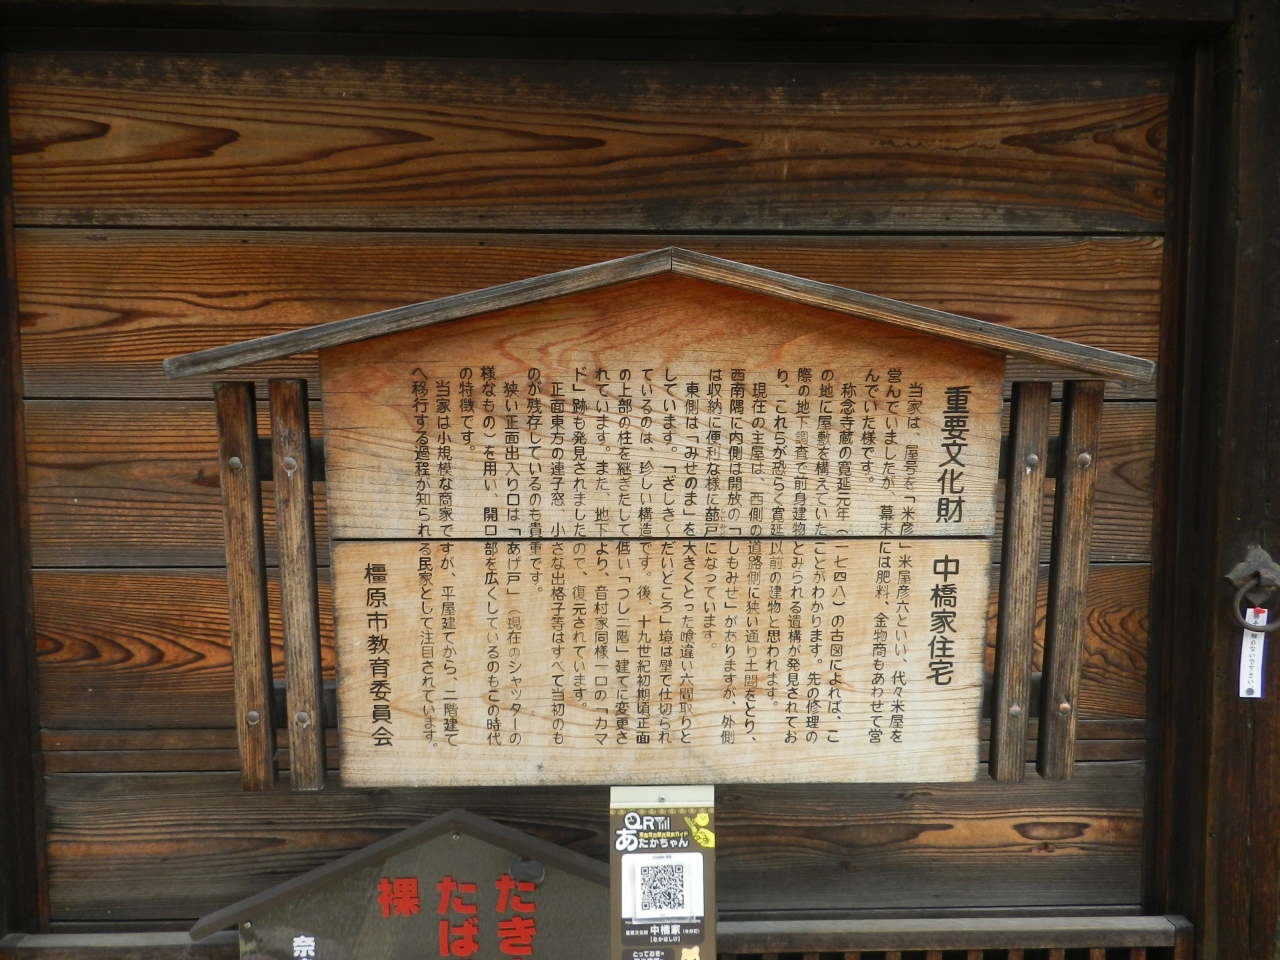 重要文化財 中橋家住宅
当家は、屋号を「米彦」米屋彦六といい、代々米屋を
営んでいましたが、幕末には肥料、金物商もあわせて営
んでいた様です。
称念寺蔵の寛延元年（一七四八）の古図によれば、こ
の地に屋敷を構えていたことがわかります。先の修理の
際の地下調査で前身建物とみられる遺構が発見されてお
り、これらが恐らく寛延以前の建物と思われます。
現在の主屋は、西側の道路側に狭い通り土間をとり、
西南隅に内側は開放の「しもみせ」がありますが、外側
は収納に便利な様に蔀戸になっています。
東側は「みせのま」を大きくとった喰違い六間取りと
しています。「ざしき〜だいどころ」境は壁で仕切られ
ているのは、珍しい構造です。後、十九世紀初期頃正面
の上部の柱を継ぎたして低い「つし二階」建てに変更さ
れています。また、地下より、音村家同様一口の「カマ
ド」跡も発見されましたので、復元されています。
正面東方の連子窓、小さな出格子等はすべて当初のも
のが残存しているのも貴重です。
狭い正面出入り口は「あげ戸」（現在のシャッターの
様なもの）を用い、開口部を広くしているのもこの時代
の特徴です。
当家は小規模な商家ですが、平屋建てから、二階建て
へ移行する過程が知られる民家として注目されています。
橿原市教育委員会
QR
あたかちゃん
重要文化財 中橋家（今井町）
［なかはしけ］
とっておき
たき
たば
裸
奈